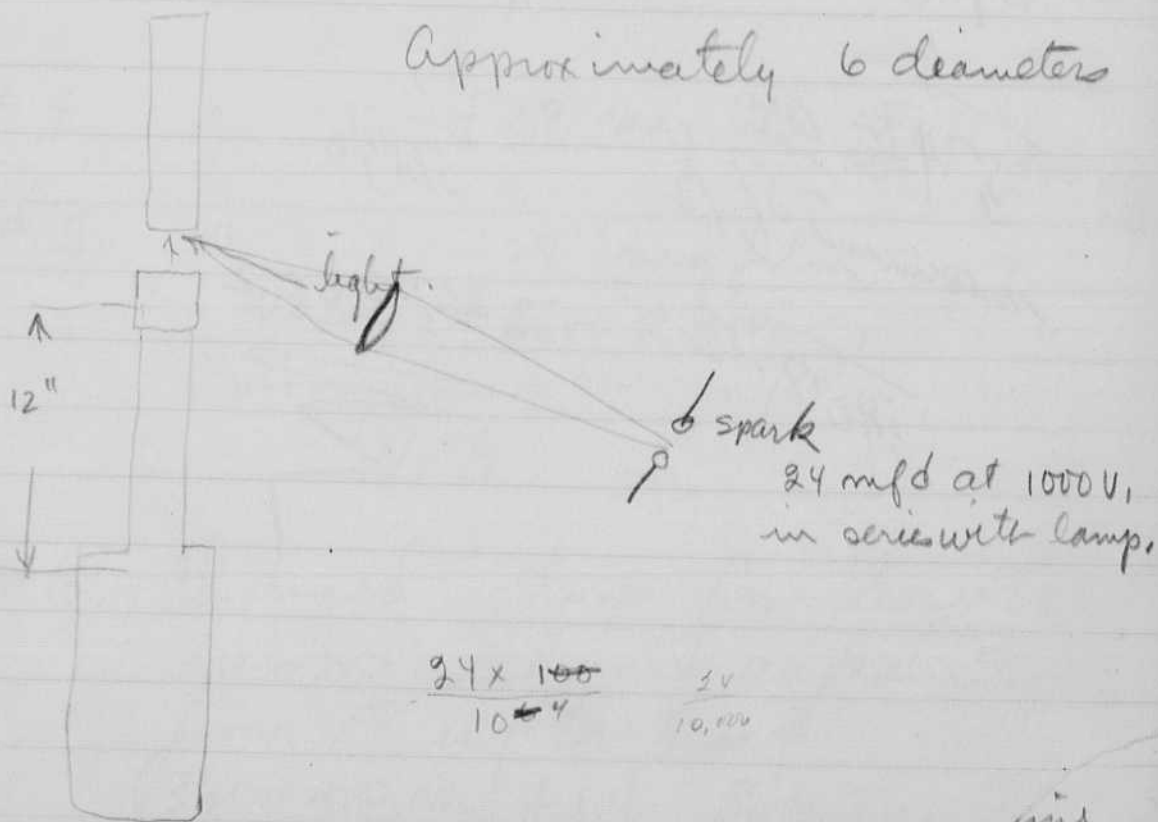 Approximately 6 diameters
light.
12"
spark
24 mfd at 1000 V,
in series with lamp.
24 x 100
10 4